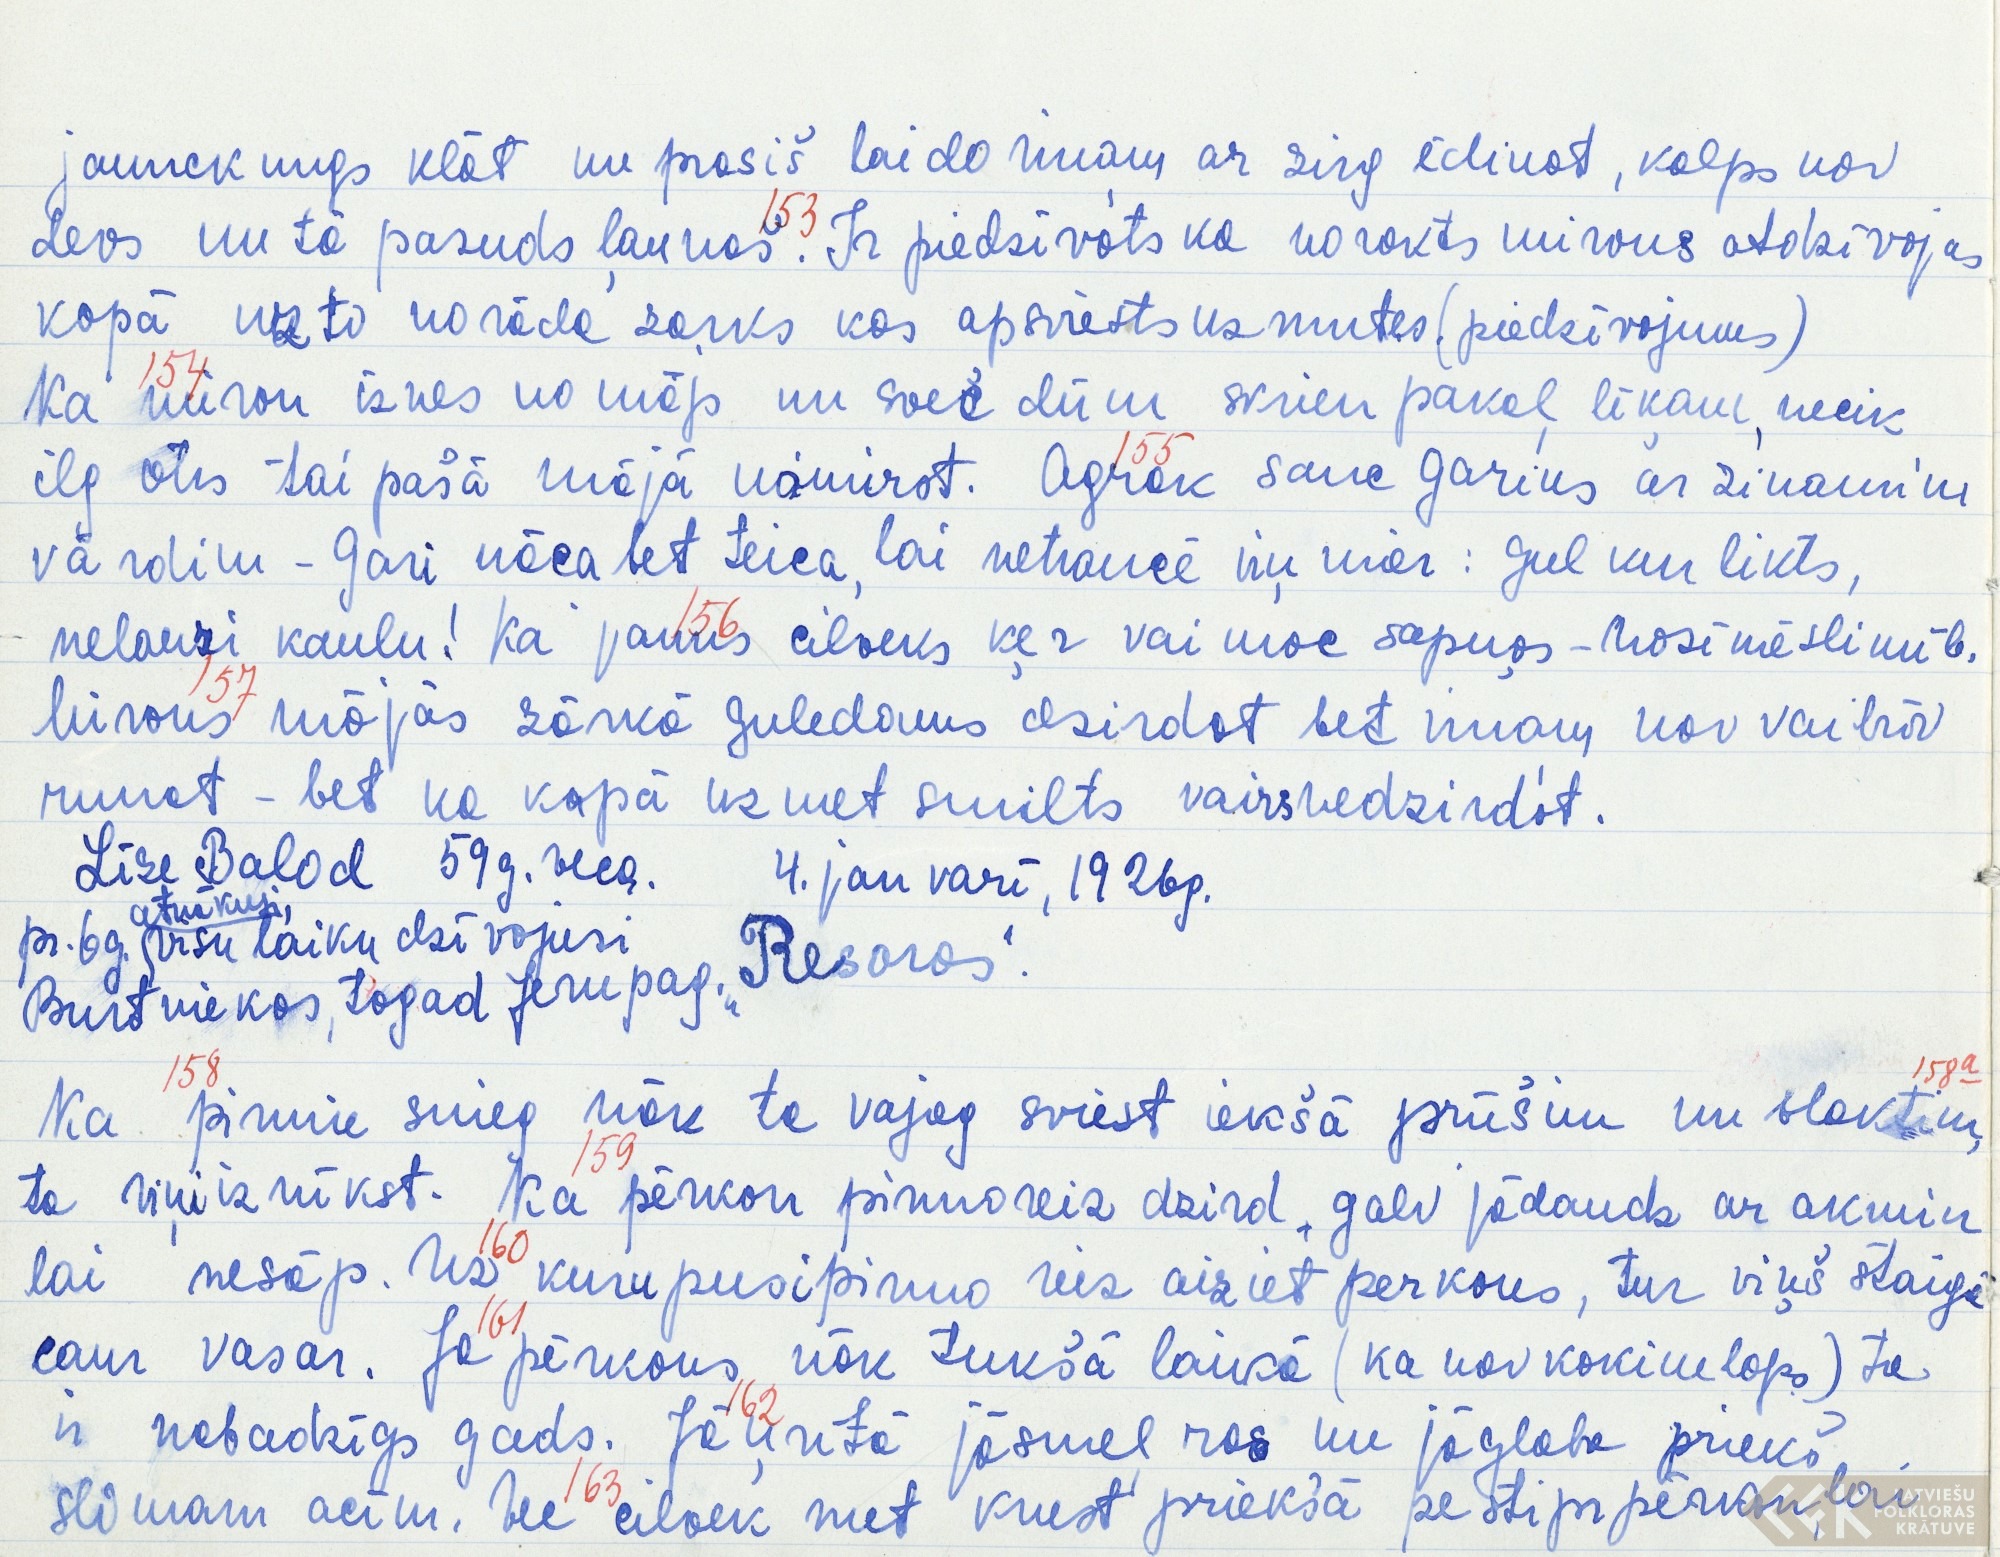 jaunckungs klāt un prasiš lai do viņam ar zirg ēdinat, kalps nav
devs un tā pazuds ļaunos. 153 Ir piedzīvots ka norakts mirons atdzīvojas
kopā uz to norāda zarks kas apsviests uz mutes (piedzīvojums)
154 Ka miron iznes no mājs un sveč dūm skrien pakaļ līķam, necik
ilg ots tai pašā mājā nomirst. 155 Agrak sauc garins ar zinamim
vārdim – Gari nāca bet teica, lai netraucē viņ mier: Gul kur likts,
nelauzi kaulu! 156 Ka jauns cilveks ķer vai moc sapņos – nozimē slimīb.
157 Mirons mājās zārkā guledams dzirdot bet viņam nav vai brīv
runat – bet ka kapā uzmet smilts vairs nedzirdot.
Līze Balod 59 g. veca. 4. janvarī, 1926 g.
pr. 6 g. atnākusi, visu laiku dzīvojusi
Burtniekos, tagad Jeru pag. „Resaros".
158 Ka pirmie snieg nāk ta vajag sviest iekšā prūšim un blaktim, 158a
ta viņi iznīkst. 159 Ka pērkon pirmoreiz dzird, galv jādaudz ar akmin
lai nesāp. 160 Uz kuru pusi pirmo reiz aiziet perkons, tur viņš staigā
caur vasar. 161 Ja pērkons nāk tukšā laikā (ka nav kokim lops) ta
ir nabadzīgs gads. 162 Jāņrītā jāsmeļ ras un jāglaba priekš
slimam acīm. 163 Vec cilvek met krust priekšā pe stipr pērkon, lai
LATVIEŠU
FOLKLORAS
KRĀTUVE